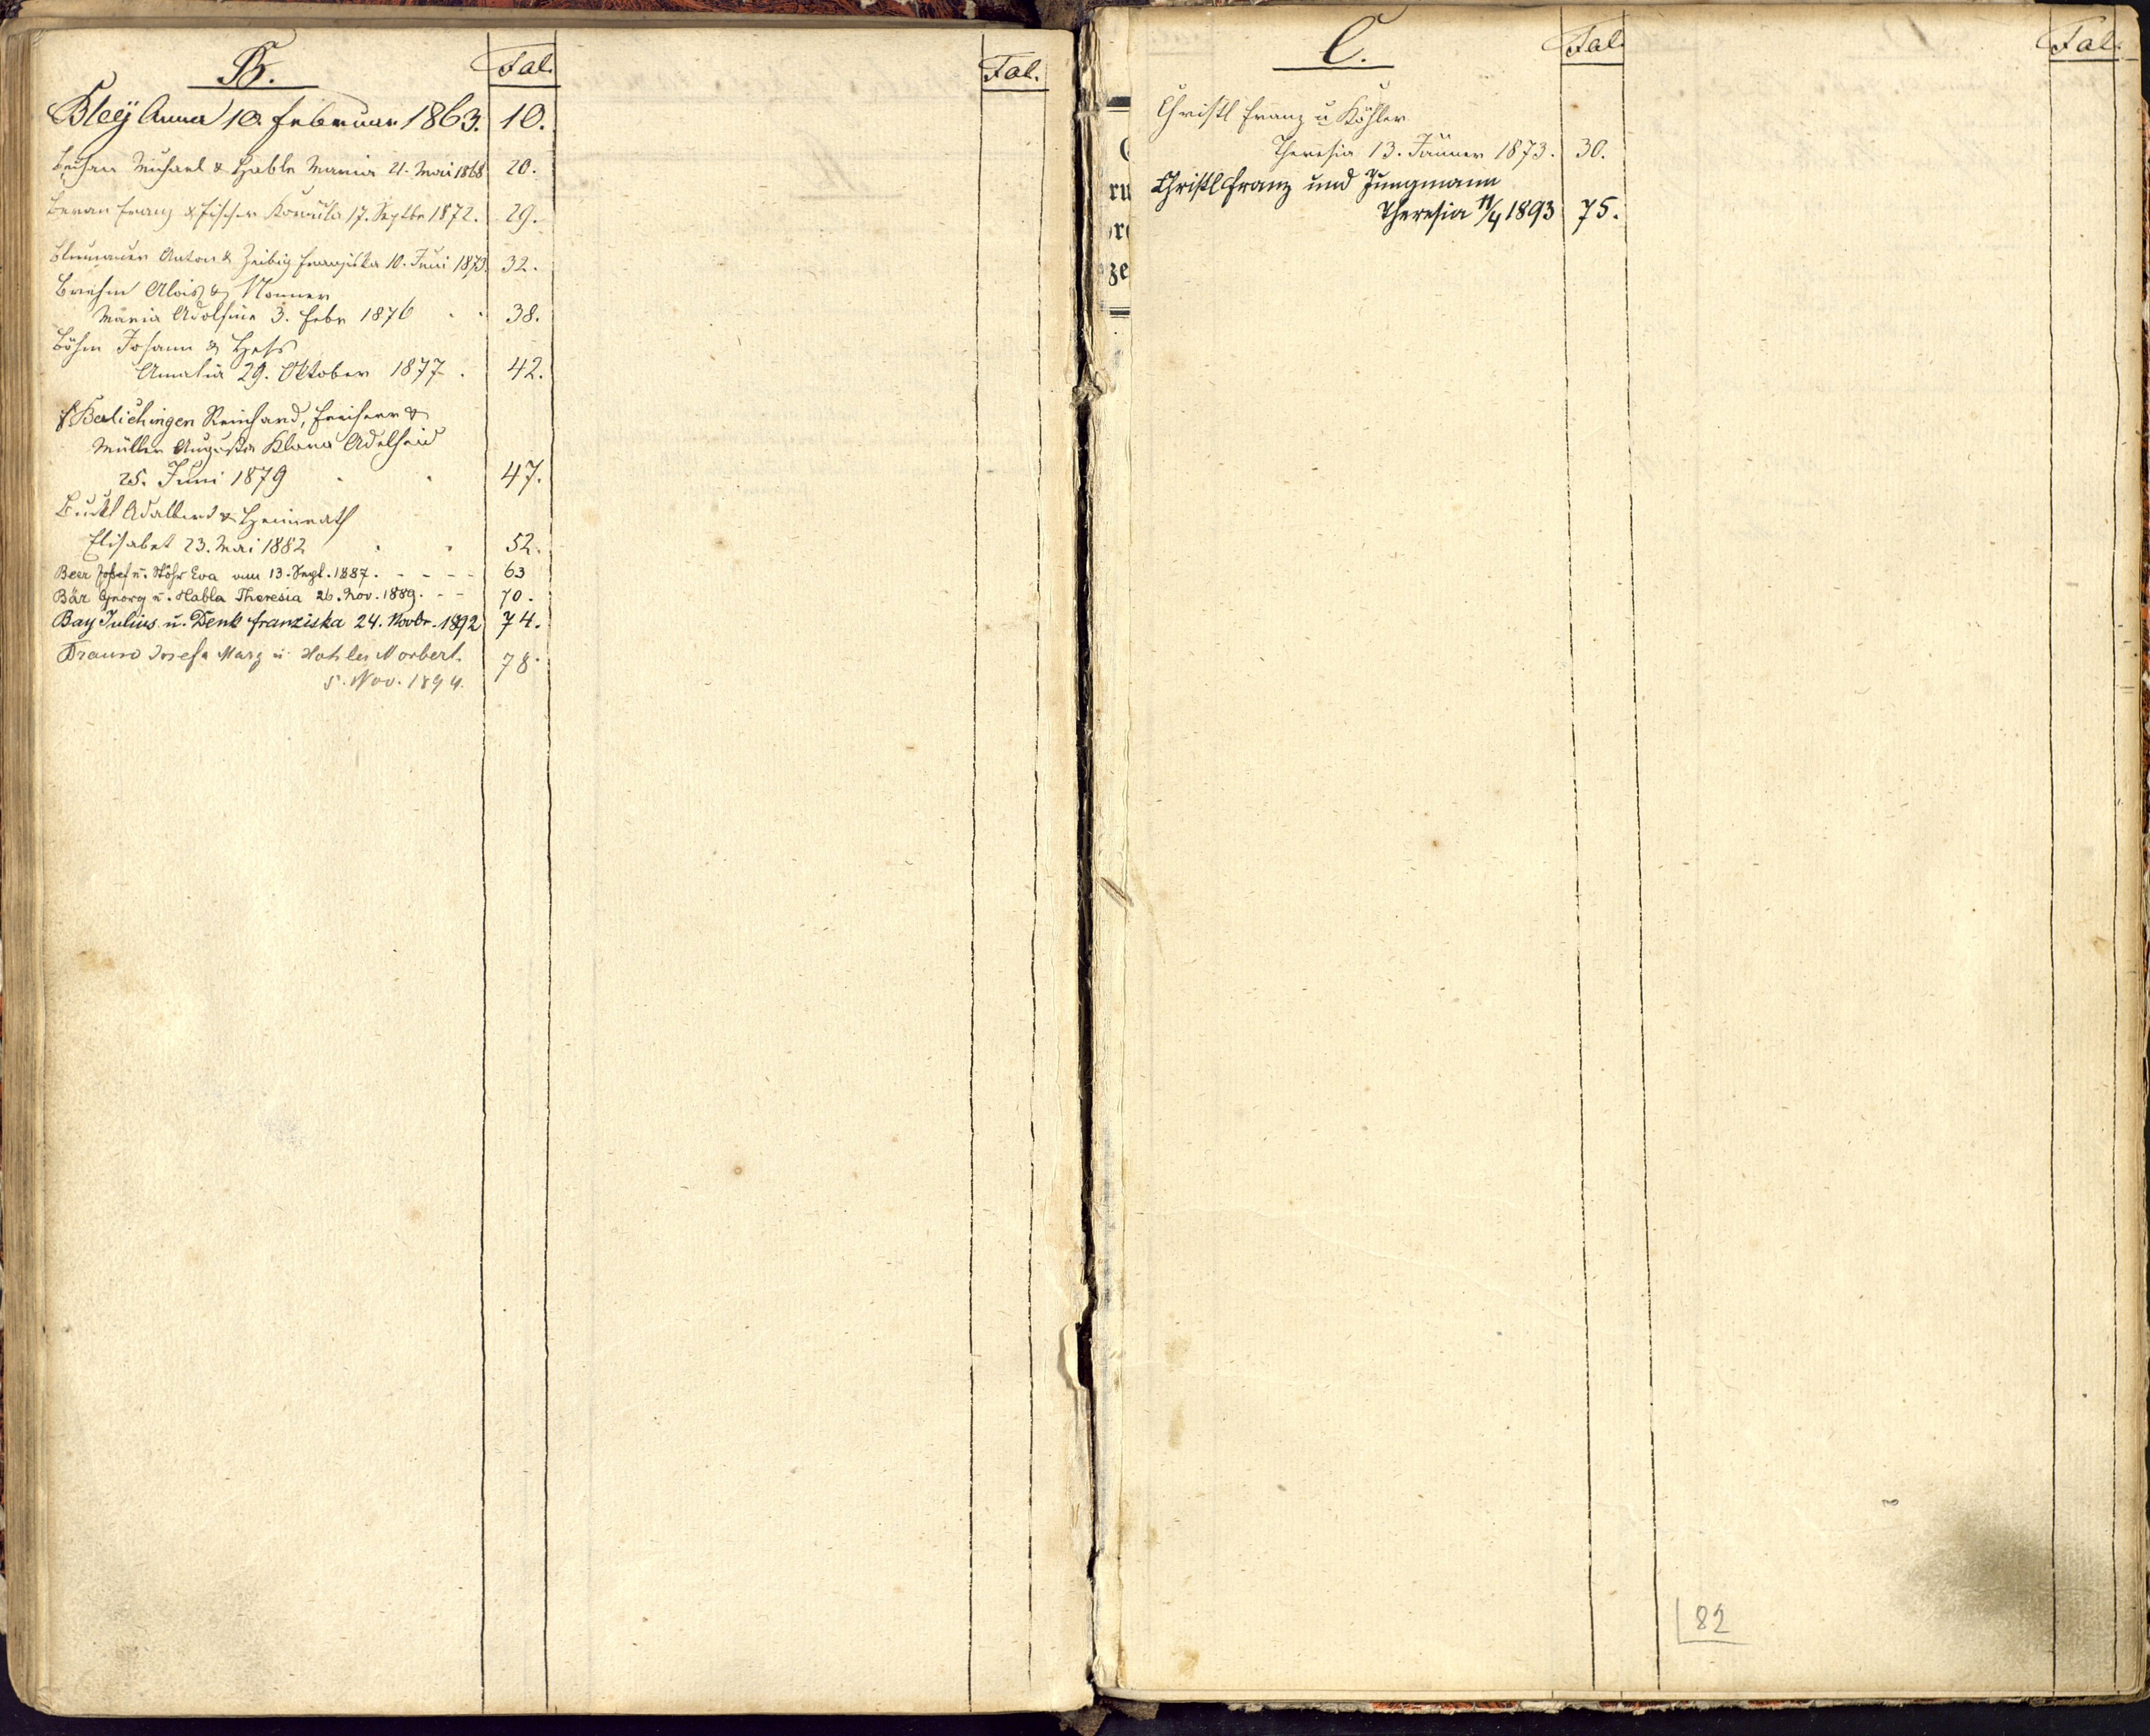 B.
Fol.
Fol.
Bleÿ Anna 10. Februar 1863. 10.
Michael & Hable Maria 21. Mai 1868 20.
Beran Franz & Fischer 17. Septbr 1872. 29.
Blumauer Anton & Zeibig Franziska 10. Juni 1873. 32.
Brehm Alois &
Maria Adolfine 3. Febr 1876 38.
Böhm Johann & Heß
Amalia 29. Oktober 1877. 42.
Berlichingen Reinhard, Freiherr &
Müller Augusta Klara Adelheid
25. Juni 1879 47.
Adalbert & Heinrath
Elisabet 23. Mai 1882 52.
Beer Josef u. Stöhr Eva am 13. Sept. 1887. - - - - 63
Bär Georg u. Habla Theresia 26. Nov. 1889. - - 70.
Bay Julius u. Denk Franziska 24. Novbr. 1892 74.
Braun Josefa Marg u. Norbert.
5. Nov. 1894. 78.
C.
Fol.
Fol.
Christl Franz u Köhler
Theresia 13. Jänner 1873. 30.
Christl Franz und Jungmann
Theresia 11/4 1893 75.
ru
ze
82